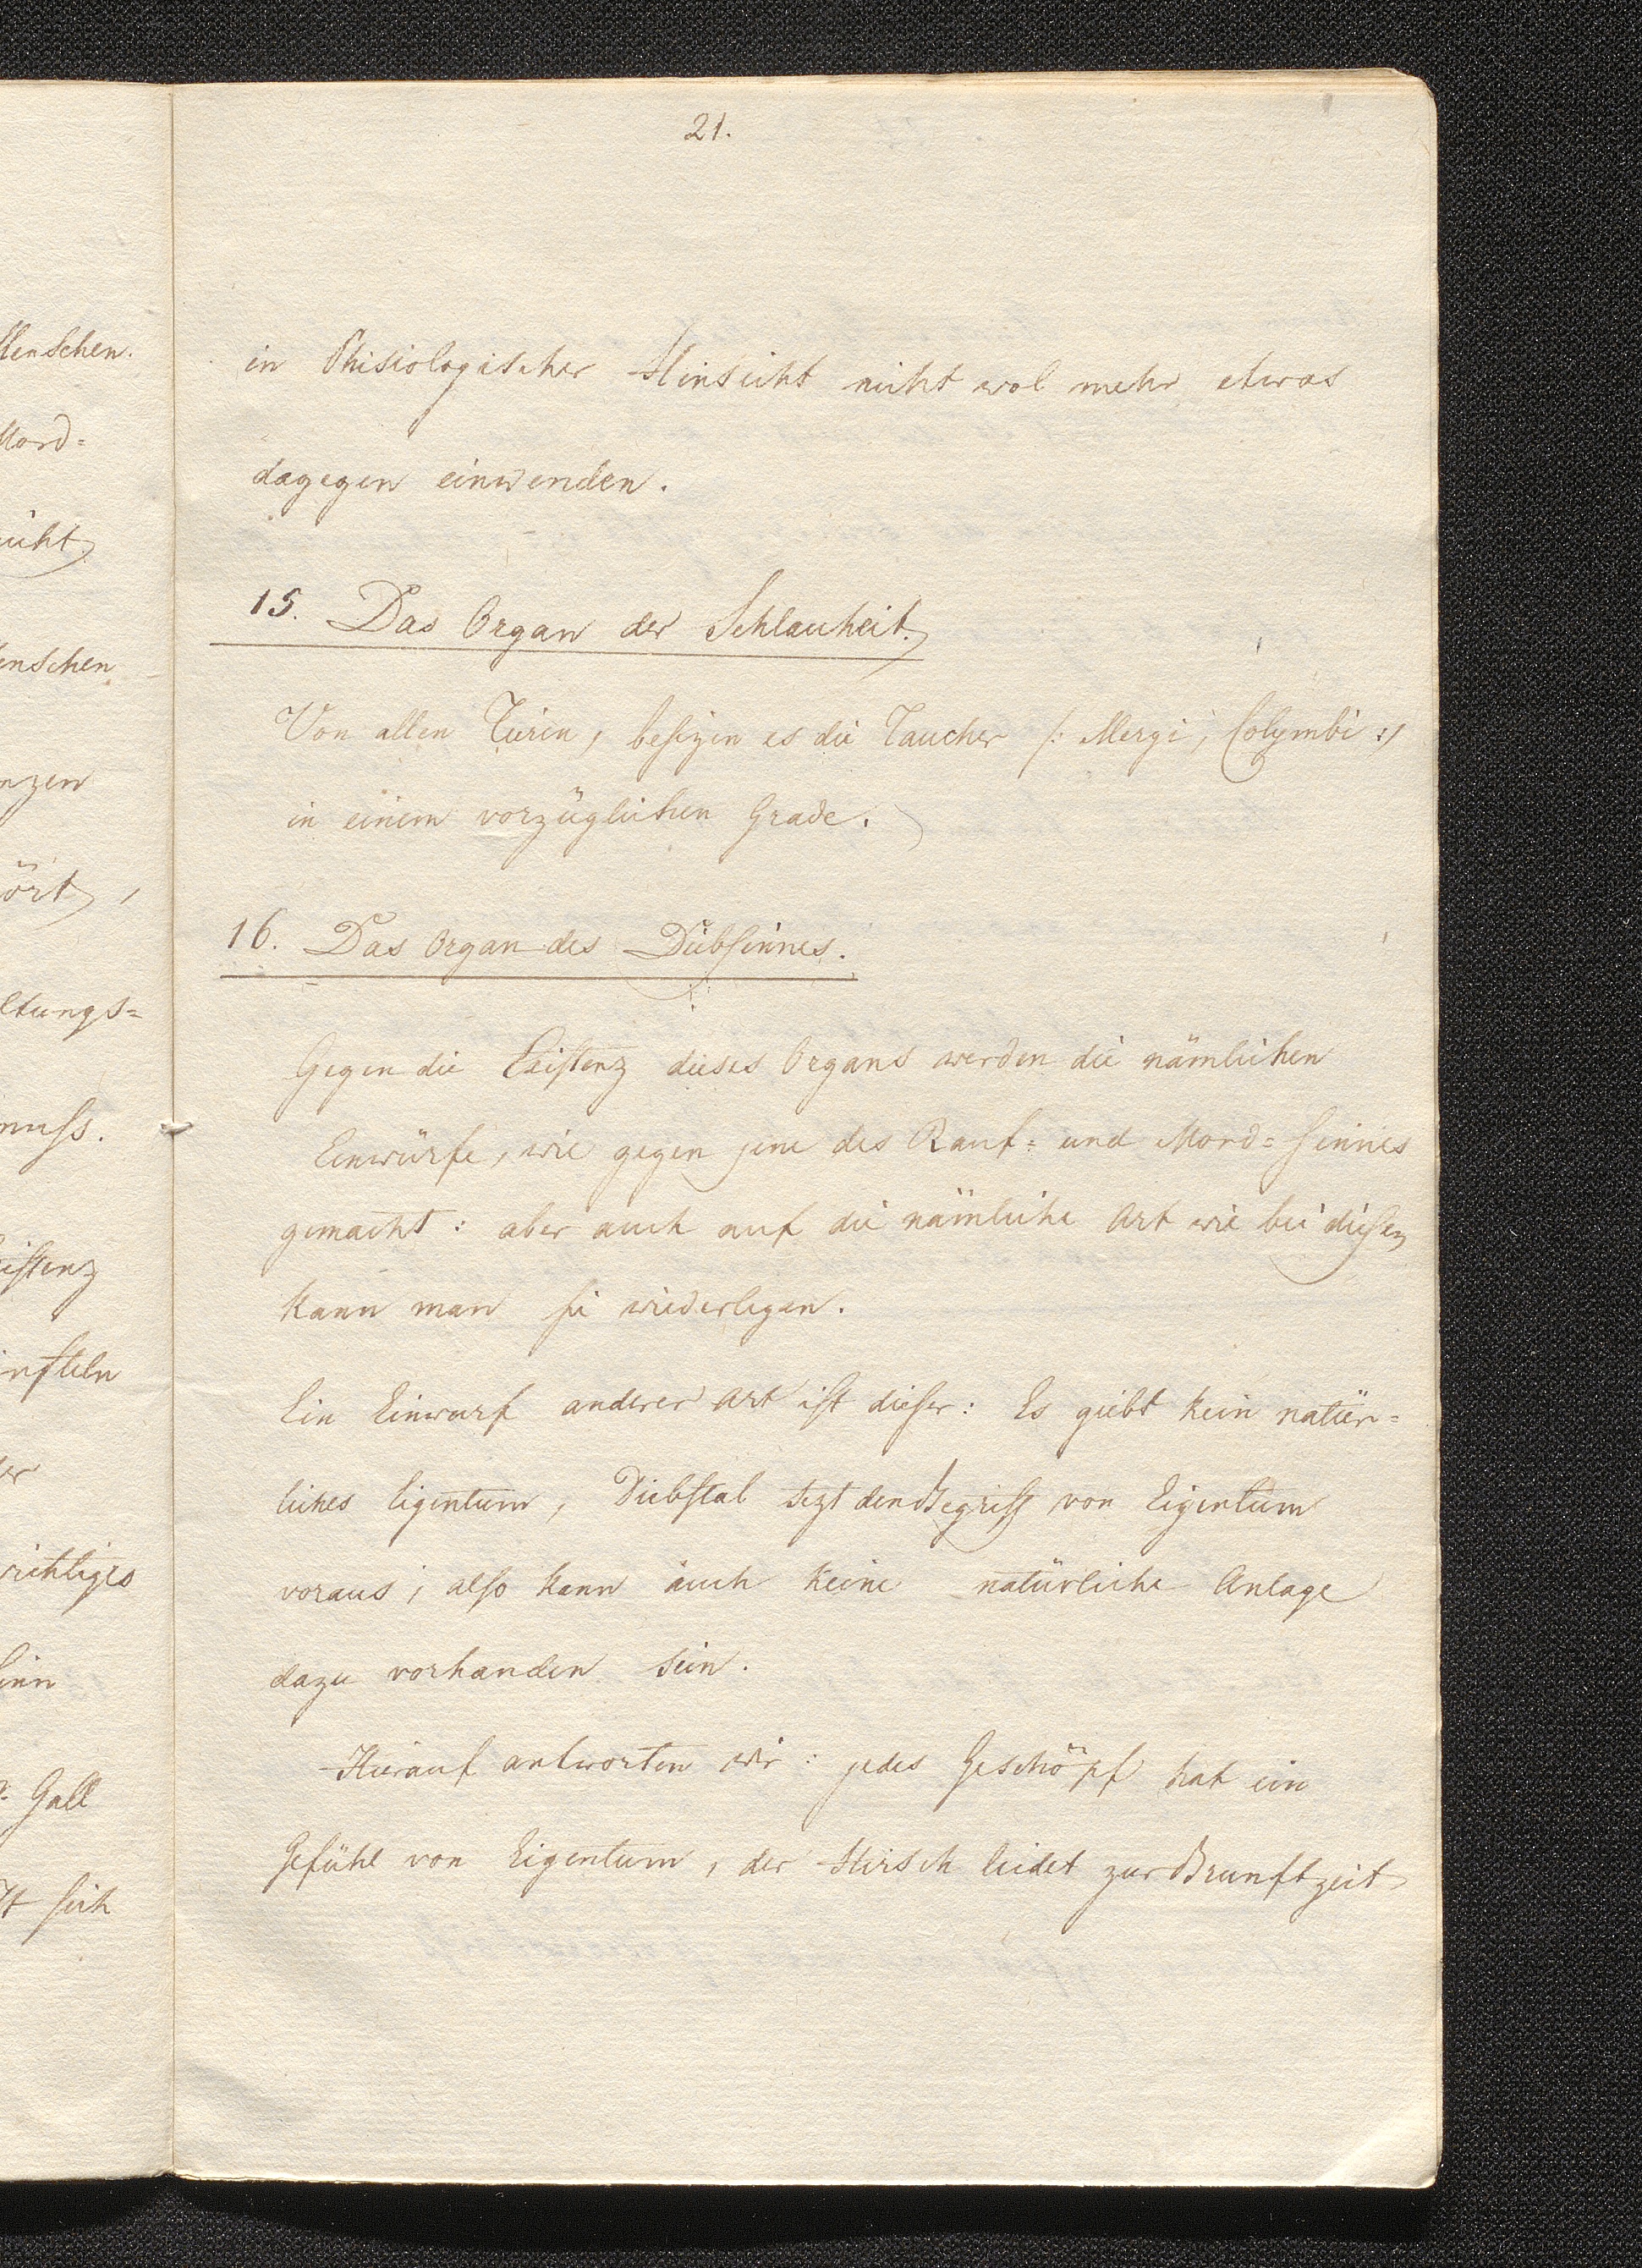 lenschen.
Mord=
nicht
enschen
nzen
ört,
ltungs=
muſs.
iſtenz
inſteln
er
richtiges
ſinn
Gall
ſich
21.
in Phisiologischer Hinsicht nicht wol mehr etwas
dagegen einwenden.
15. Das Organ der Schlauheit.
Von allen Tieren, beſizen es die Taucher /: Mergi, Colymbi :/
in einem vorzüglichen Grade.
16. Das Organ des Diebſinnes.
Gegen die Exiſtenz dieses Organs werden die nämlichen
Einwürfe, wie gegen jene des Rauf= und Mord=ſinnes
gemacht: aber auch auf die nämliche Art wie bei dieſen
kann man ſie wiederlegen.
Ein Einwurf anderer Art iſt dieſer: Es giebt kein natür=
liches Eigentum, Diebſtal sezt den Begriff von Eigentum
voraus; alſo kann auch keine natürliche Anlage
dazu vorhanden sein.
Hierauf antworten wir: jedes Geschöpf hat ein
Gefühl von Eigentum, der Hirsch leidet zur Brunftzeit